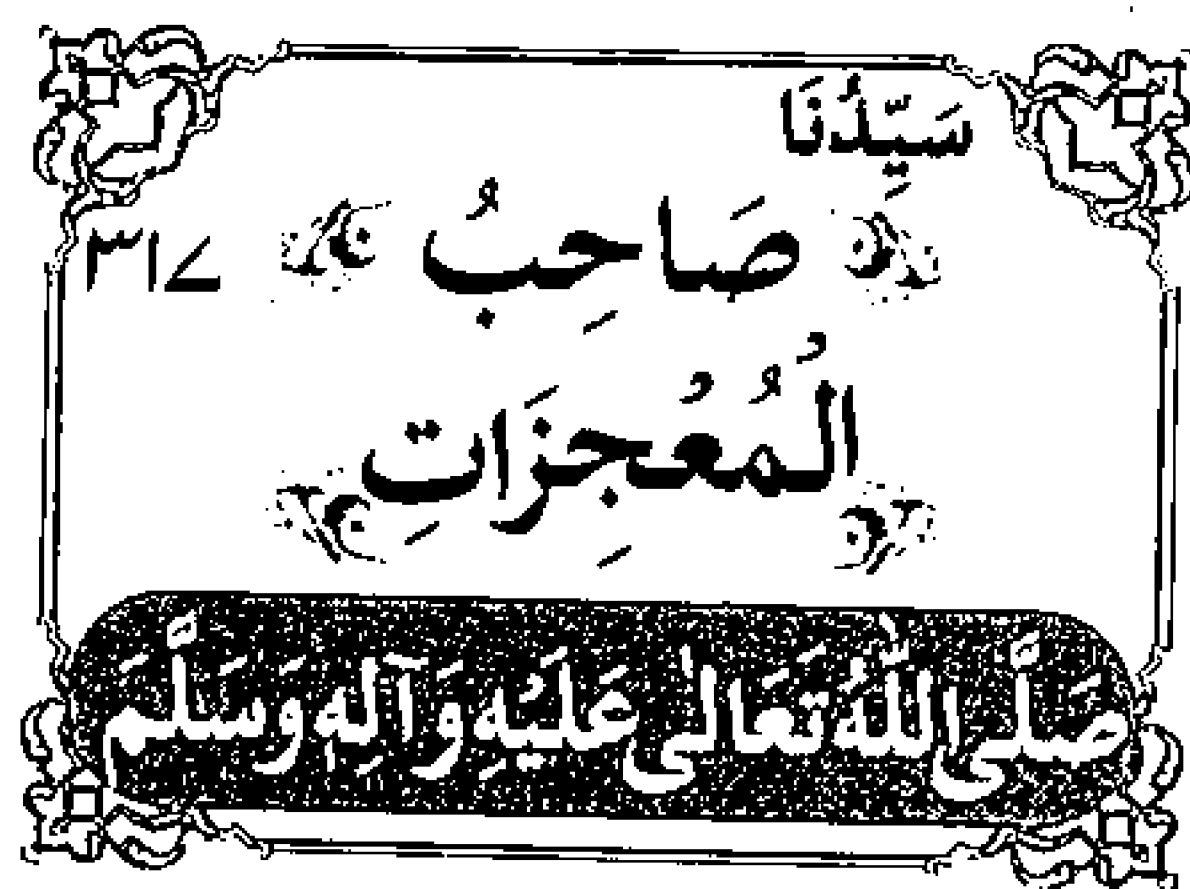 سَيِّدُنَا
صَاحِبُ
۳۱۷
الْمُعْجِزَاتِ
صَلَّى اللّٰهُ تَعَالٰى عَلَيْهِ وَآلِهٖ وَسَلَّمَ